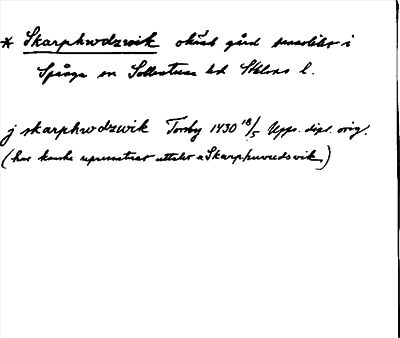 * Skarphwdzwik okänd gård sannolikt i
Spånga en Sollentuna hd Sthlms l.
j skarphwdzwik Torsby 1430 18/5 Upps. dipl. orig.
(har kanske representerat uttalet a Skarphuvudsvik)